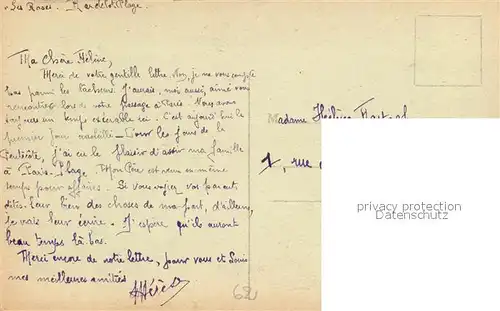 "Les Roses". Plage.
Ma Chère Hélène,
Merci de votre gentille lettre. Non, je ne vous compte
pas parmi les lâcheurs. J'aurais, moi aussi, aimé vous
rencontrer lors de votre passage à Paris. Nous avons
toujours un temps exécrable ici. C'est aujourd'hui le
premier jour ensoleillé - Pour les jours de la
Pentecôte, j'ai eu le plaisir d'avoir ma famille
à Paris-Plage. Mon Père est venu en même
temps pour affaires. Si vous voyez vos parents
dites-leur bien des choses de ma part, d'ailleurs,
je vais leur écrire. J'espère qu'ils auront
beau temps là bas.
Merci encore de votre lettre, pour vous et Louis
mes meilleures amitiés
62
Madame Hélène
1, rue
privacy protection
Datenschutz